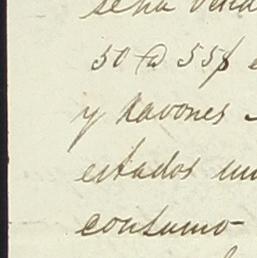 seña
50 @ 55$
y havones
estados un
consumo-